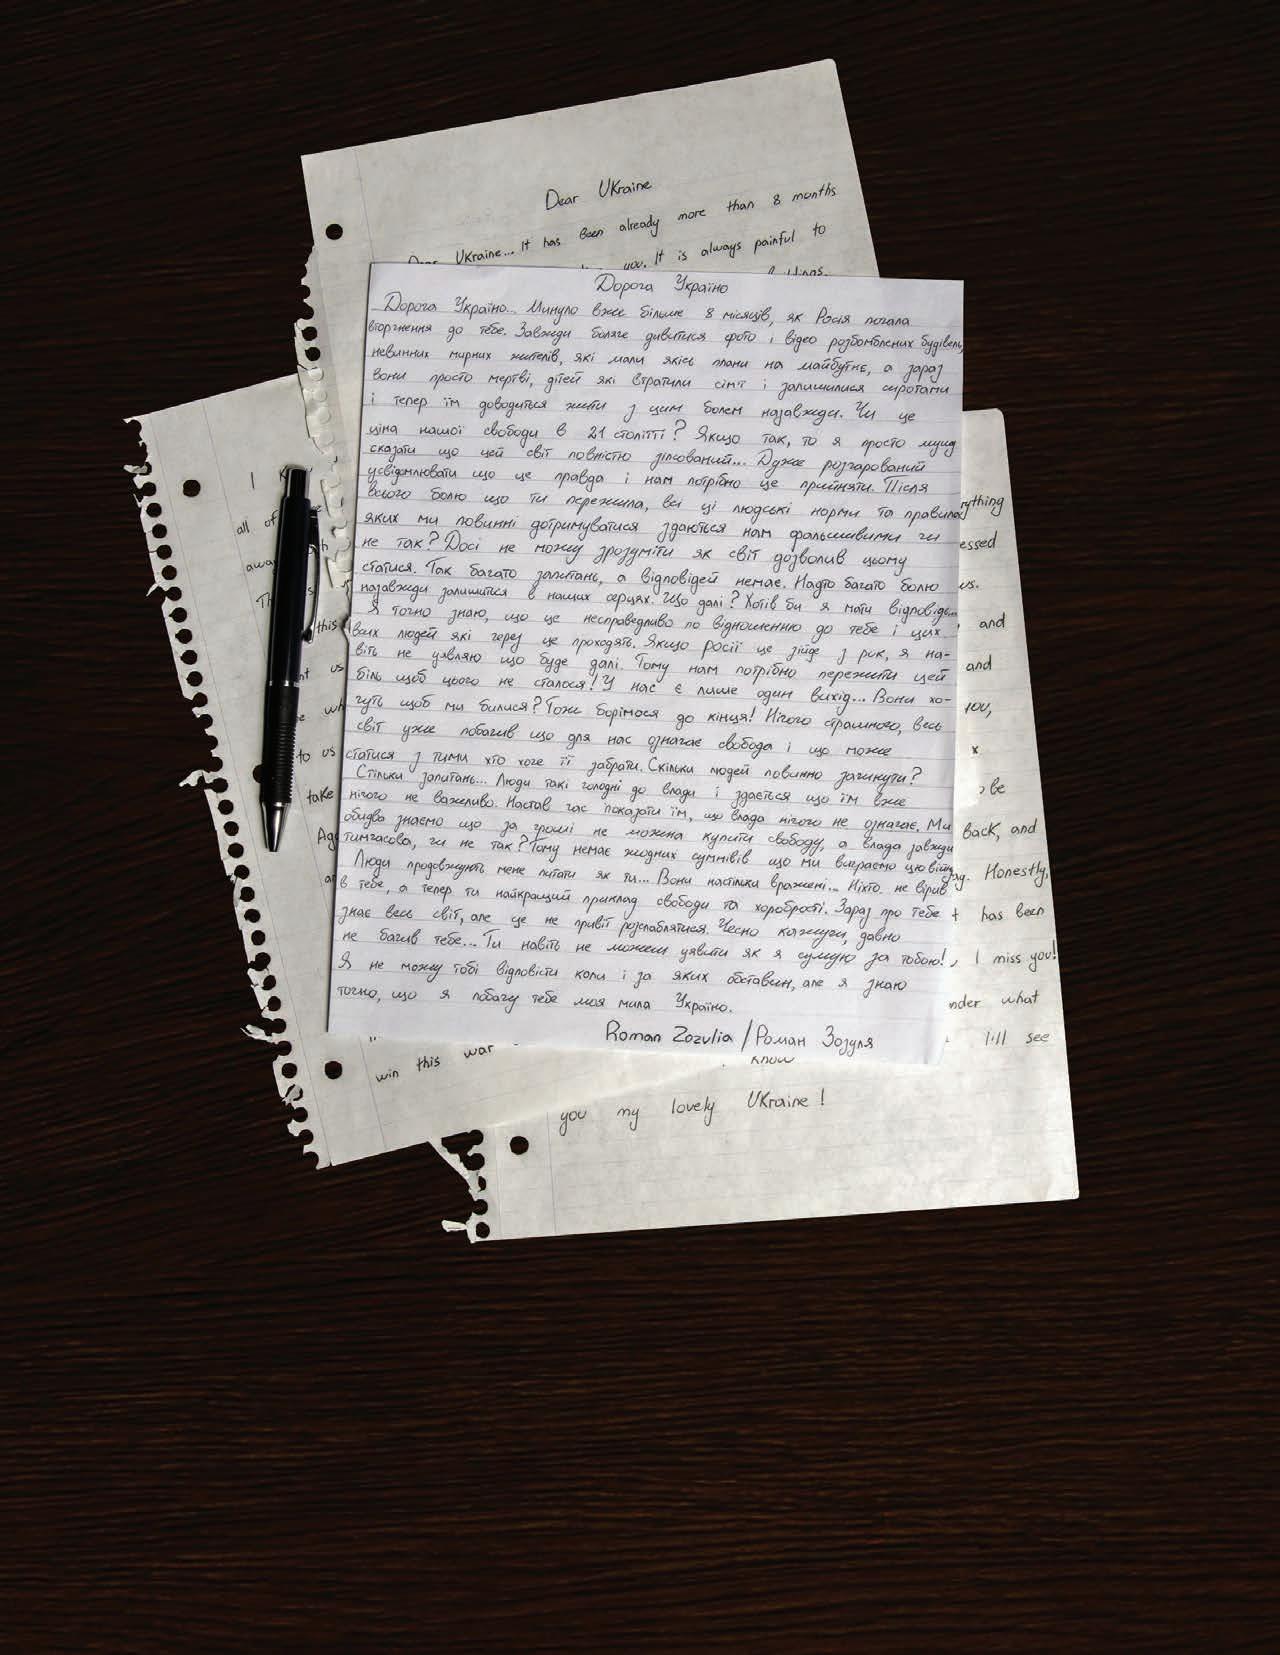 Dear Ukraine
Dear Ukraine... It has been already more than 8 months
you. It is always painful to
Дорога Україно
Дорога Україно... Минуло вже більше 8 місяців, як Росія почала
вторгнення до тебе. Завжди боляче дивитися фото і відео розбомблених будівель,
невинних мирних жителів, які мали якісь плани на майбутнє, а зараз
вони просто мертві, дітей які втратили сім'ї і залишилися сиротами
і тепер їм доводиться жити з цим болем назавжди. Чи це
ціна нашої свободи в 21 столітті? Якщо так, то я просто мушу
сказати що цей світ повністю зіпсований... Дуже розчарований
усвідомлювати що це правда і нам потрібно це прийняти. Після
всього болю що ти пережила, всі ці людські норми та правила
яких ми повинні дотримуватися здаються нам фальшивими чи
не так? Досі не можу зрозуміти як світ дозволив цьому
статися. Так багато запитань, а відповідей немає. Надто багато болю
назавжди залишиться в наших серцях. Що далі? Хотів би я мати відповідь...
Я точно знаю, що це несправедливо по відношенню до тебе і цих
всіх людей які через це проходять. Якщо росії це зійде з рук, я на-
віть не уявляю що буде далі. Тому нам потрібно пережити цей
біль щоб цього не сталося! У нас є лише один вихід... Вони хо-
чуть щоб ми билися? Тож борімося до кінця! Нічого страшного, весь
світ уже побачив що для нас означає свобода і що може
статися з тими хто хоче її забрати. Скільки людей повинно загинути?
Стільки запитань... Люди такі голодні до влади і здається що їм вже
нічого не важливо. Настав час показати їм, що влада нічого не означає. Ми
обидва знаємо що за гроші не можна купити свободу, а влада завжди
тимчасова, чи не так? Тому немає жодних суммівів що ми виграємо цю війну
Люди продовжують мене питати як ти... Вони настільки вражені... Ніхто не вірив
в тебе, а тепер ти найкращий приклад свободи та хоробрості. Зараз про тебе
знає весь світ, але це не привіт розслаблятися. Чесно кажучи, давно
не бачив тебе... Ти навіть не можеш уявити як я сумую за тобою!
Я не можу тобі відповісти коли і за яких обставин, але я знаю
точно, що я побачу тебе моя мила Україно.
Roman Zozulia / Роман Зозуля
I
all of
this
us
to us
take
win this war
and
and
you,
be
back, and
Honestly,
has been
, I miss you!
what
I'll see
know
you my lovely Ukraine!